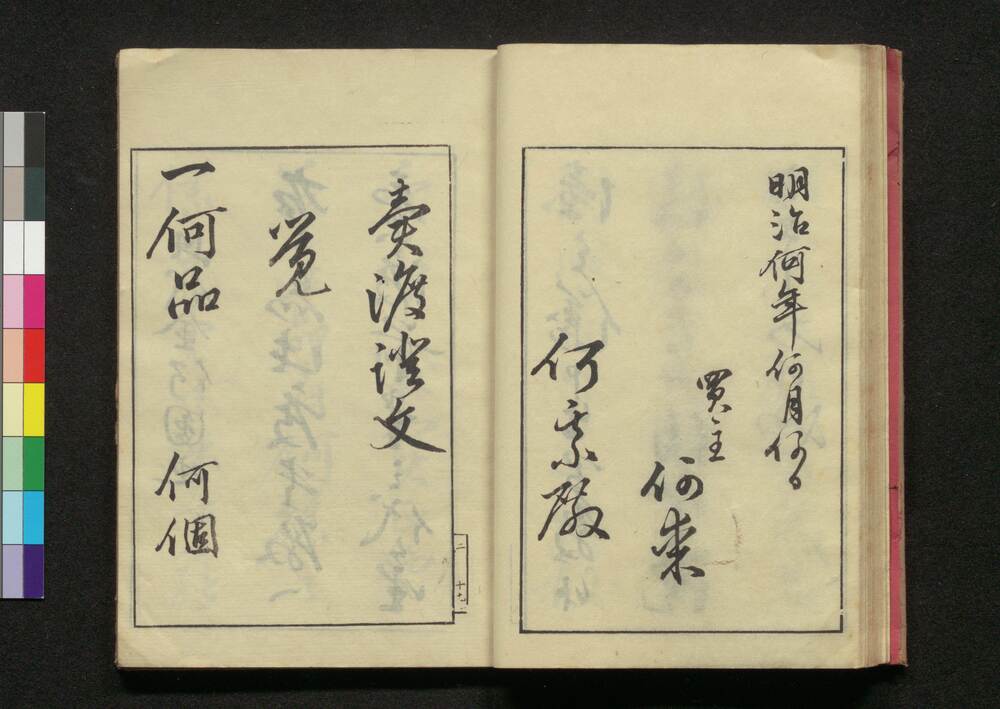 明治何年何月何日
買主
何某
何某殿
賣渡證文
覚
一何品 何個
二 十七